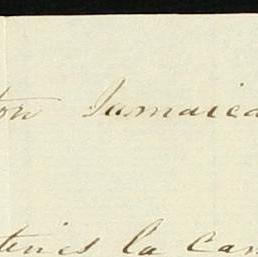 ton Jamaica
tenies la can